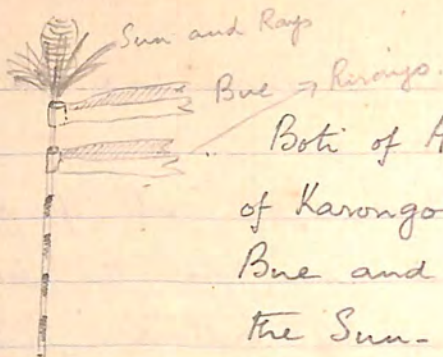 Sun and Rays
Bue → Rirongo.
Boti of A
of Karongo
Bue and
the Sun-